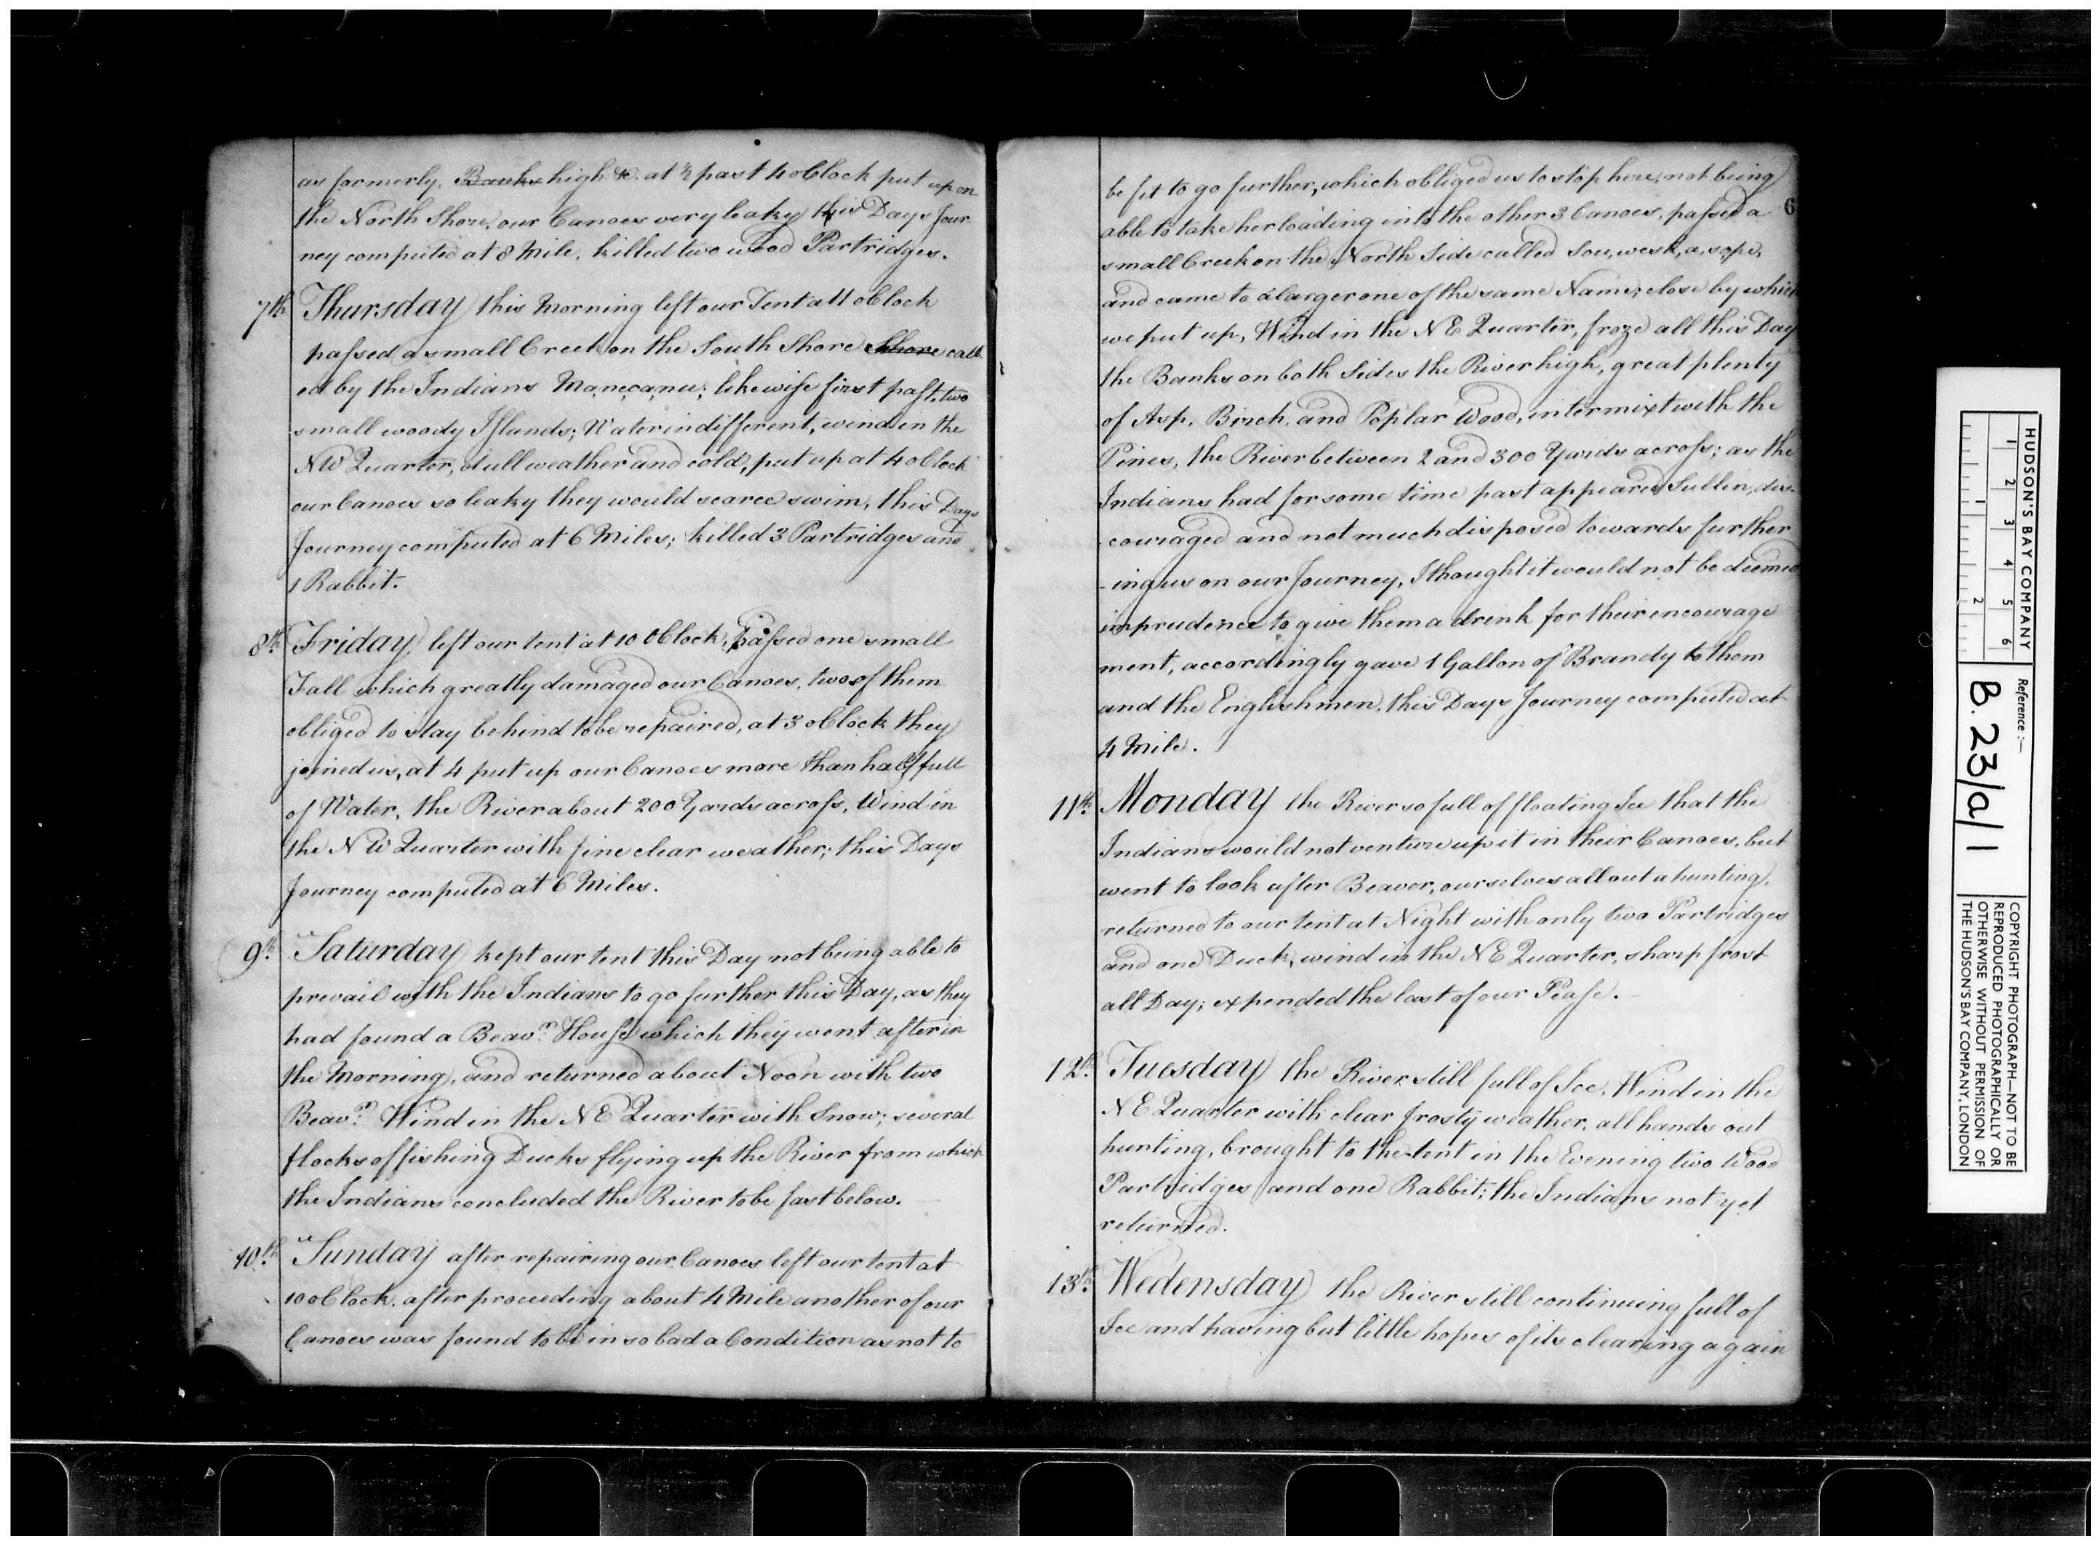 as formerly, Banks high &c. at ½ past 4 oClock put up on
the North Shore, our Canoes very leaky this Days Jour
ney computed at 8 Mile, killed two wood Partridges.
7th Thursday this Morning left our Tent at 11 oClock
passed a small Creek on the South Shore Shore call
ed by the Indians Mane,ca,nu; likewise first past, two
small woody Islands; Water indifferent, wind in the
NW Quarter, dull weather and cold, put up at 4 oClock
our Canoes so leaky they would scarce swim, this Days
Journey computed at 6 Miles; killed 3 Partridges and
1 Rabbit.
8th Friday left our tent at 10 oClock, passed one small
Fall which greatly damaged our Canoes, two of them
obliged to stay behind to be repaired, at 3 oClock they
joined us, at 4 put up our Canoes more than half full
of Water, the River about 200 Yards across, Wind in
the N W Quarter with fine clear weather; this Days
Journey computed at 6 Miles.
9th Saturday kept our tent this Day not being able to
prevail with the Indians to go further this Day, as they
had found a Beavr. House which they went after in
the Morning, and returned about Noon with two
Beavr. Wind in the N E Quarter with Snow; several
flocks of fishing Ducks flying up the River from which
the Indians concluded the River to be fast below.
10th Sunday after repairing our Canoes left our tent at
10 oClock, after proceeding about 4 Mile another of our
Canoes was found to be in so bad a Condition as not to
6
be fit to go further, which obliged us to stop here, not being
able to take her loading into the other 3 Canoes, passed a
small Creek on the North Side called Sou,wesk,a,sope,
and came to a larger one of the same Name, close by which
we put up, Wind in the N E Quarter, froze all this Day
the Banks on both Sides the River high, great plenty
of Asp, Birch, and Poplar Wood, intermixt with the
Pines, the River between 2 and 300 Yards across; as the
Indians had for some time past appeared Sullin, dis-
-couraged and not much disposed towards further
-ing us on our Journey, I thought it would not be deemed
imprudence to give them a drink for their encourage
ment, accordingly gave 1 Gallon of Brandy to them
and the Englishmen, this Days Journey computed at
4 Mile.
11th Monday the River so full of floating Ice that the
Indians would not venture up it in their Canoes, but
went to look after Beaver, ourselves all out a hunting,
returned to our tent at Night with only two Partridges
and one Duck, wind in the N E Quarter, sharp frost
all Day; expended the last of our Pease.
12th Tuesday the River still full of Ice, Wind in the
N E Quarter with clear frosty weather, all hands out
hunting, brought to the tent in the Evening two Wood
Partridges and one Rabbit; the Indians not yet
returned.
13th Wedensday the River still continuing full of
Ice and having but little hopes of its clearing again
HUDSON'S BAY COMPANY
1 2 3 4 5 6
1 2
Reference:—
B.23/a/1
COPYRIGHT PHOTOGRAPH—NOT TO BE
REPRODUCED PHOTOGRAPHICALLY OR
OTHERWISE WITHOUT PERMISSION OF
THE HUDSON'S BAY COMPANY, LONDON